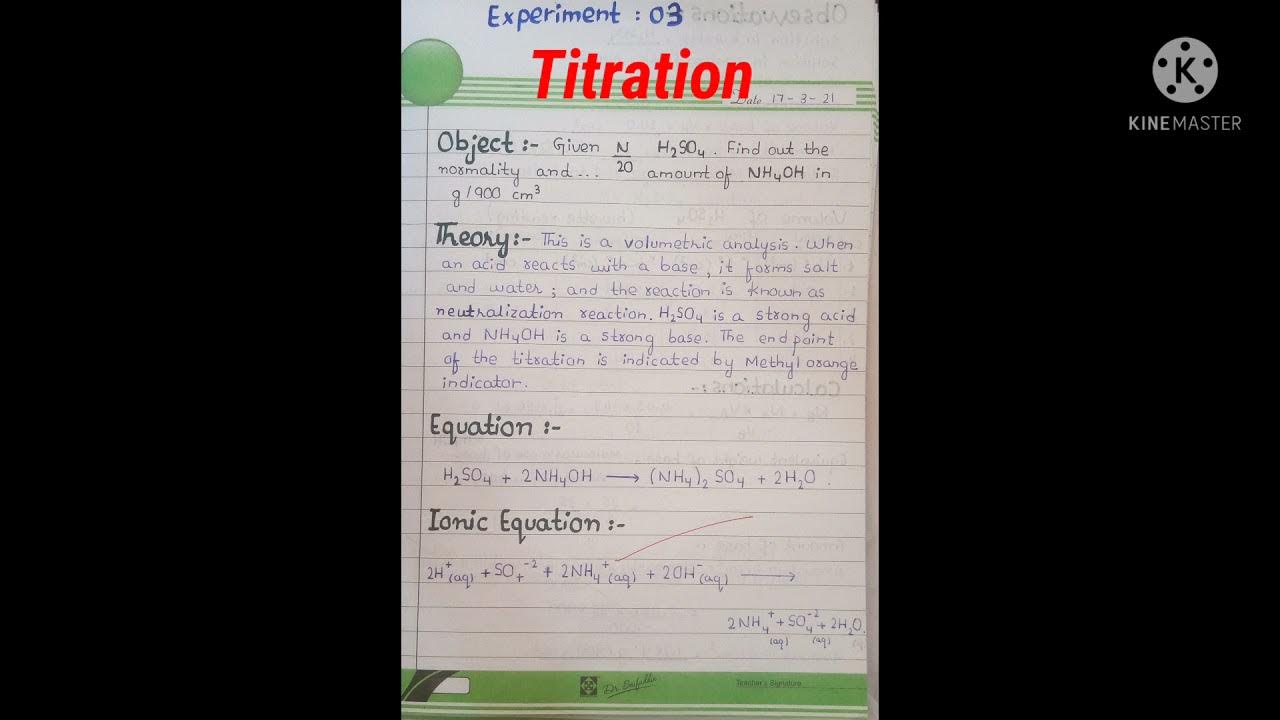 Experiment : 03
Titration
KINEMASTER
Date 17-3-21
Object :- Given N/20 H₂SO₄. Find out the
normality and... amount of NH₄OH in
g/900 cm³
Theory:- This is a volumetric analysis. When
an acid reacts with a base, it forms salt
and water; and the reaction is known as
neutralization reaction. H₂SO₄ is a strong acid
and NH₄OH is a strong base. The end point
of the titration is indicated by Methyl orange
indicator.
Equation :-
H₂SO₄ + 2NH₄OH ⟶ (NH₄)₂ SO₄ + 2H₂O .
Ionic Equation :-
2H⁺(aq) + SO₄⁻² + 2NH₄⁺(aq) + 2OH⁻(aq) ⟶
2NH₄⁺(aq) + SO₄⁻²(aq) + 2H₂O.
Teacher's Signature